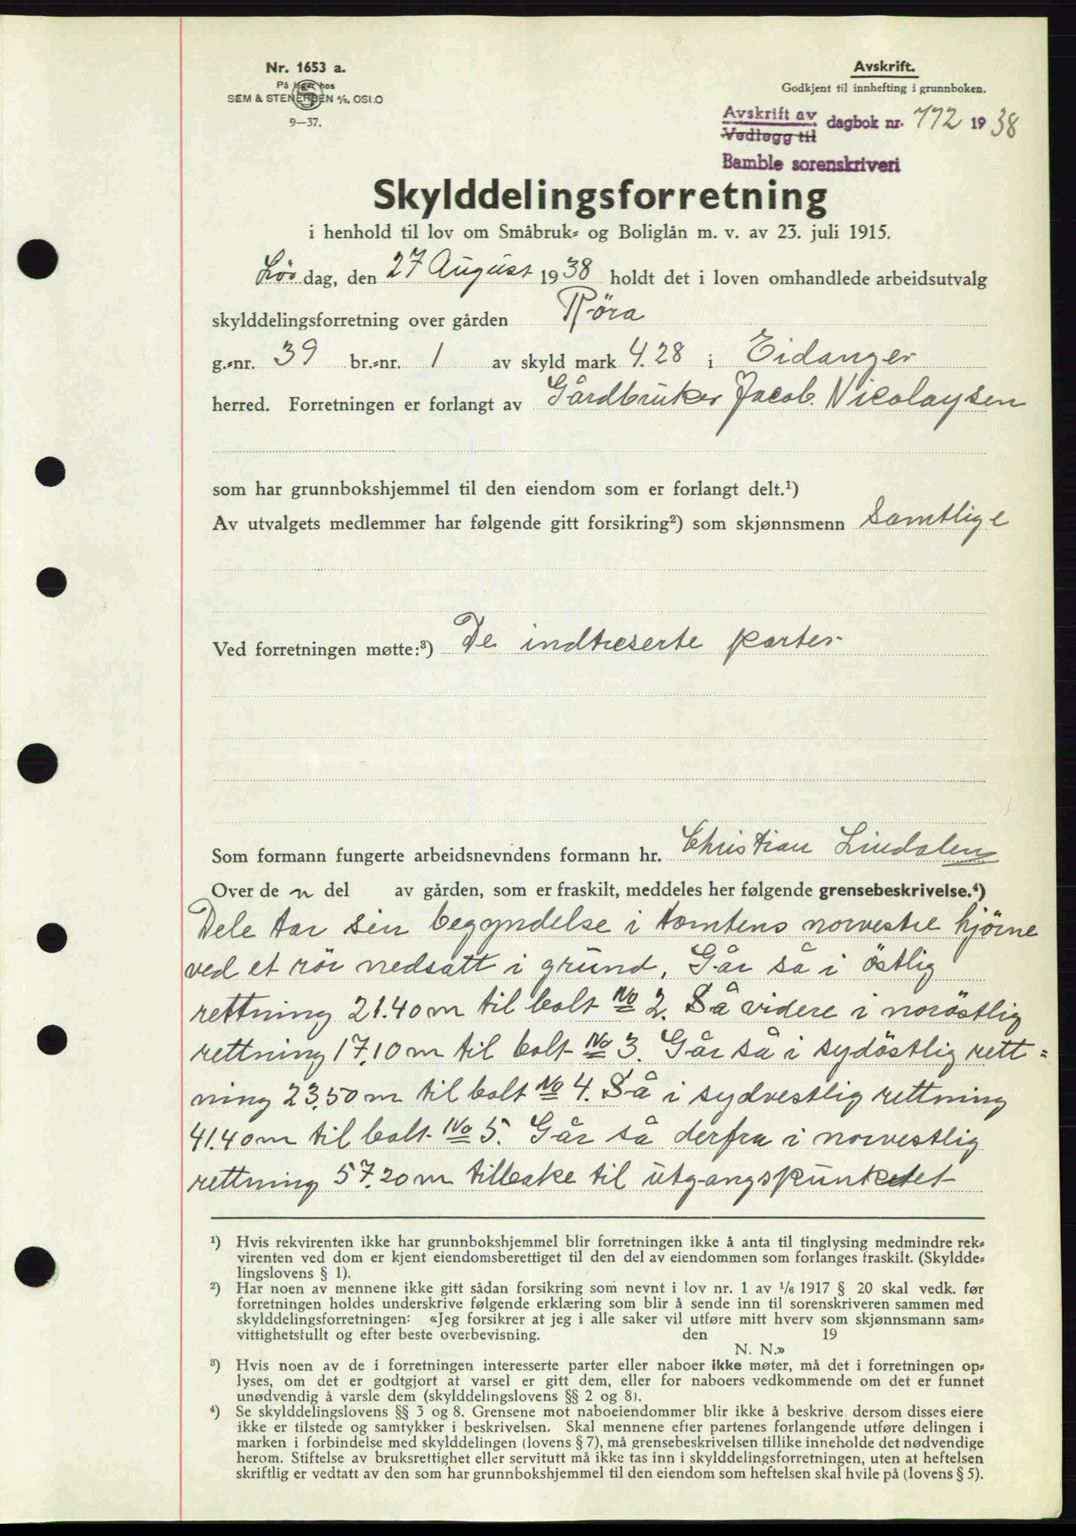 Nr. 1653 a.
På lager hos
SEM & STENERSEN A/S, OSLO
9—37.
Avskrift.
Godkjent til innhefting i grunnboken.
Avskrift av
Vedlegg til
dagbok nr. 772 1938
Bamble sorenskriveri
Skylddelingsforretning
i henhold til lov om Småbruk- og Boliglån m. v. av 23. juli 1915.
Lör dag, den 27 August 1938 holdt det i loven omhandlede arbeidsutvalg
skylddelingsforretning over gården Röra
g.-nr. 39 br.-nr. 1 av skyld mark 4.28 i Eidanger
herred. Forretningen er forlangt av Gårdbruker Jacob Nicolaysen
som har grunnbokshjemmel til den eiendom som er forlangt delt.¹)
Av utvalgets medlemmer har følgende gitt forsikring²) som skjønnsmenn Samtlige
Ved forretningen møtte:³) De indtreserte parter
Som formann fungerte arbeidsnevndens formann hr. Christian Lindalen
Over de n del av gården, som er fraskilt, meddeles her følgende grensebeskrivelse.⁴)
Dele tar sin begyndelse i tomtens norvestre hjörne
ved et rör nedsatt i grund. Går så i östlig
rettning 21.40 m til bolt No 2. Så videre i noröstlig
rettning 17,10 m til bolt No 3. Går så i sydöstlig rett-
ning 23,50 m til bolt No 4. Så i sydvestlig rettning
41.40 m til bolt No 5. Går så derfra i norvestlig
rettning 57.20 m tilbake til utgangspunktet
¹) Hvis rekvirenten ikke har grunnbokshjemmel blir forretningen ikke å anta til tinglysing medmindre rek-
virenten ved dom er kjent eiendomsberettiget til den del av eiendommen som forlanges fraskilt. (Skyldde-
lingslovens § 1).
²) Har noen av mennene ikke gitt sådan forsikring som nevnt i lov nr. 1 av 1/6 1917 § 20 skal vedk. før
forretningen holdes underskrive følgende erklæring som blir å sende inn til sorenskriveren sammen med
skylddelingsforretningen: «Jeg forsikrer at jeg i alle saker vil utføre mitt hverv som skjønnsmann sam-
vittighetsfullt og efter beste overbevisning. den 19
N. N.»
³) Hvis noen av de i forretningen interesserte parter eller naboer ikke møter, må det i forretningen op-
lyses, om det er godtgjort at varsel er gitt dem, eller for naboers vedkommende om det er funnet
unødvendig å varsle dem (skylddelingslovens §§ 2 og 8).
⁴) Se skylddelingslovens §§ 3 og 8. Grensene mot naboeiendommer blir ikke å beskrive dersom disses eiere
ikke er tilstede og samtykker i beskrivelsen. Skal mennene efter partenes forlangende utføre delingen i
marken i forbindelse med skylddelingen (lovens § 7), må grensebeskrivelsen tillike inneholde det nødvendige
herom. Stiftelse av bruksrettighet eller servitutt må ikke tas inn i skylddelingsforretningen, uten at heftelsen
skriftlig er vedtatt av den som har grunnbokshjemmel til den eiendom som heftelsen skal hvile på (lovens § 5).